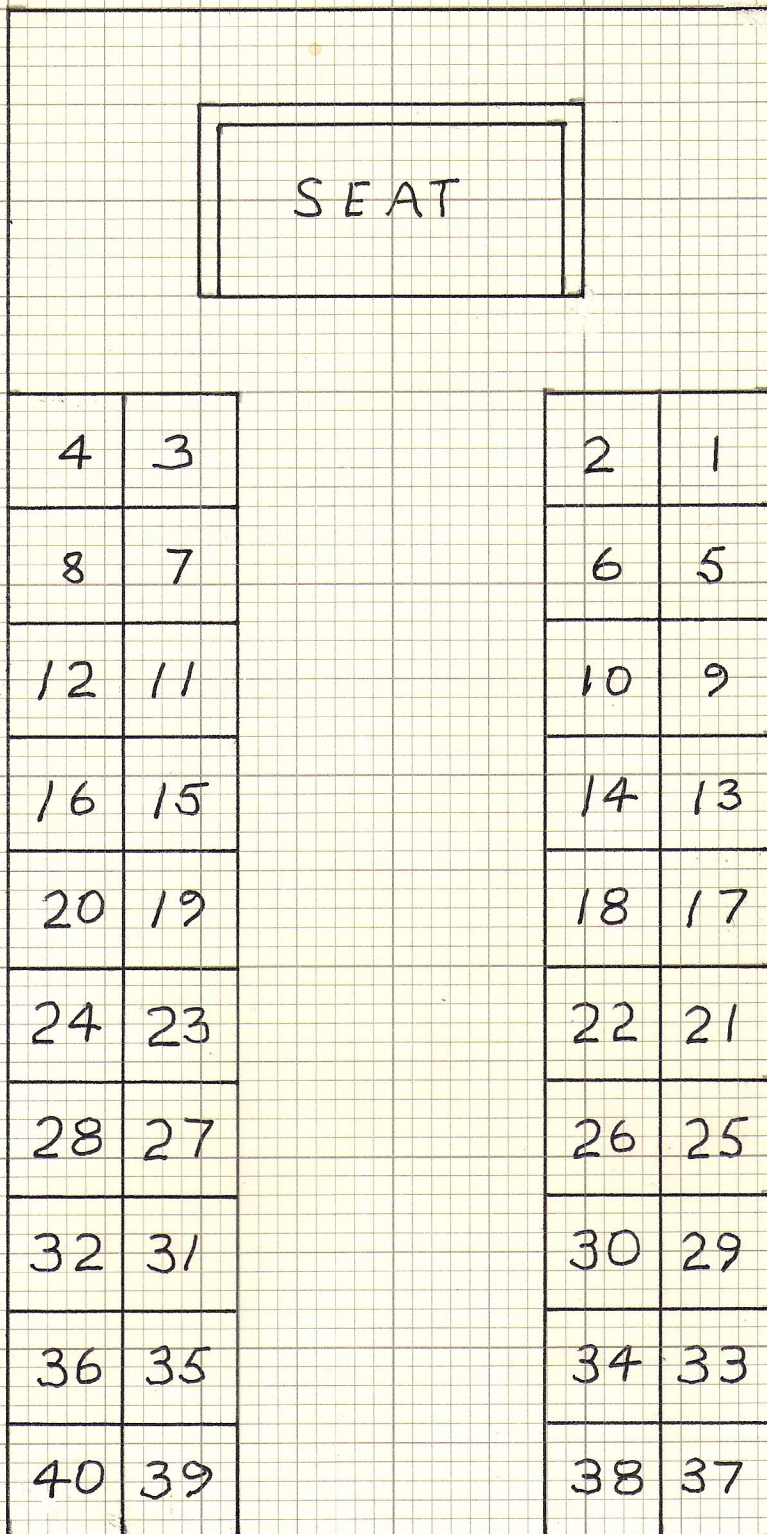 SEAT
4 3 2 1
8 7 6 5
12 11 10 9
16 15 14 13
20 19 18 17
24 23 22 21
28 27 26 25
32 31 30 29
36 35 34 33
40 39 38 37